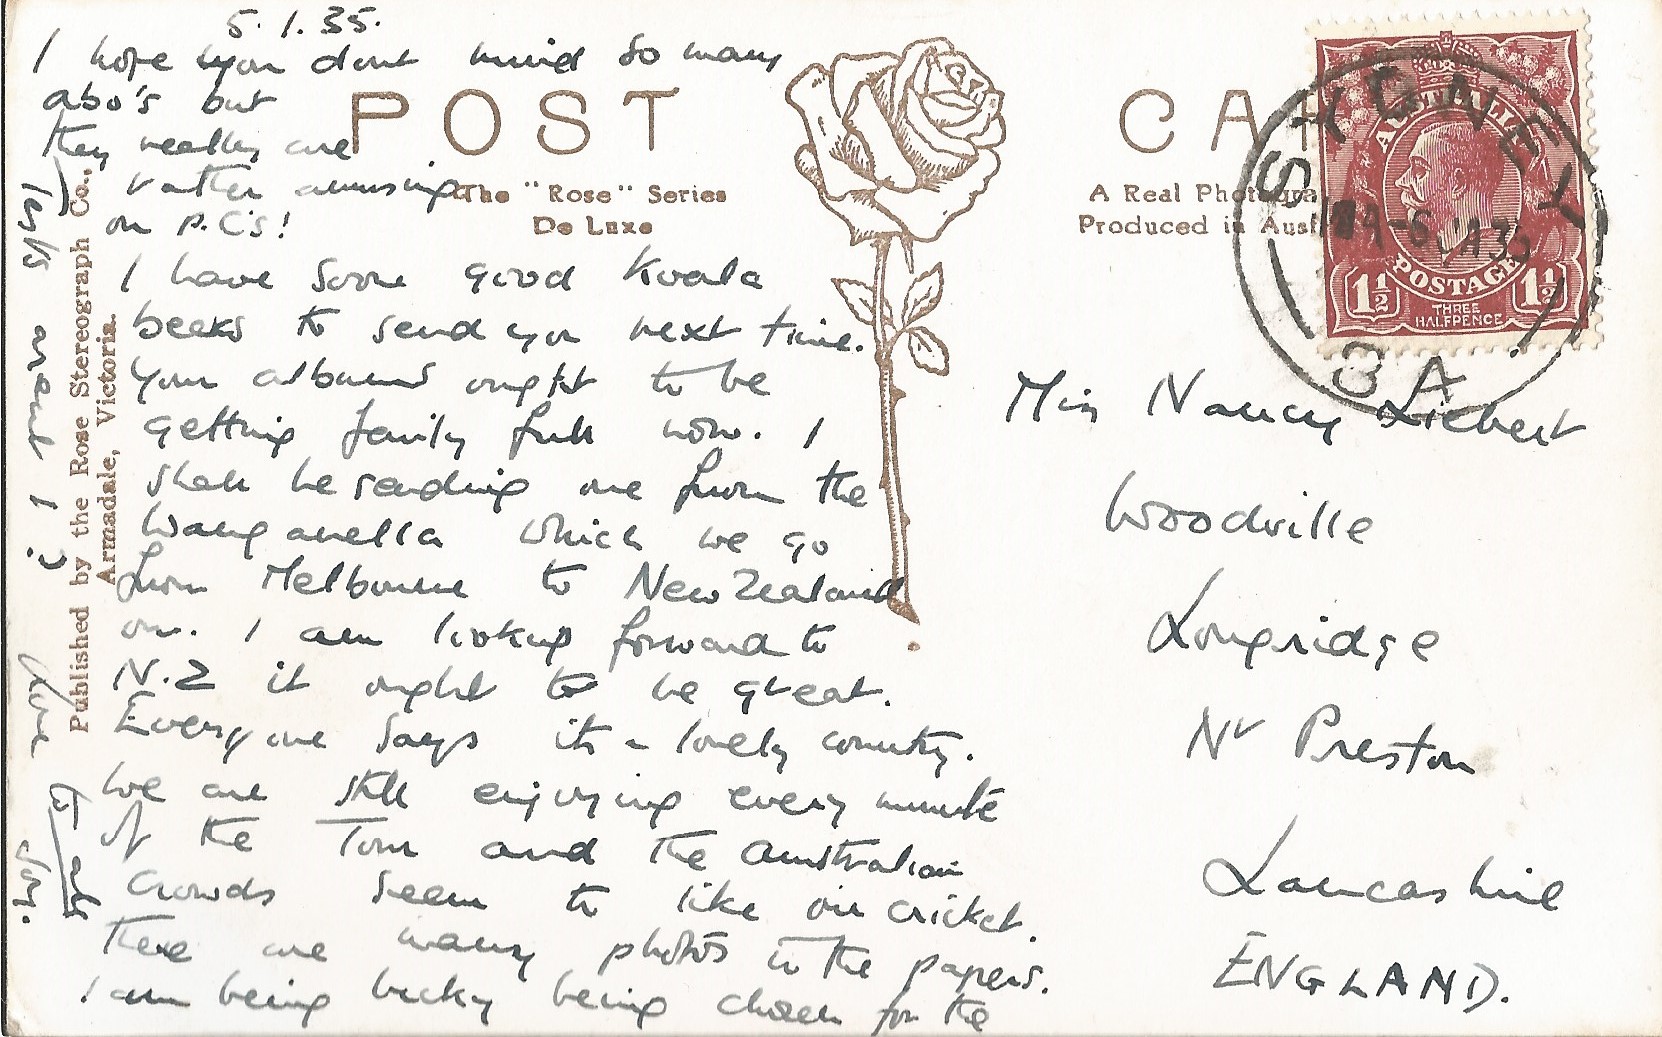 5.1.35.
I hope you dont mind so many
abo's but
they really are
rather amusing
on P.C's!
I have some good Koala
bears to send you next time.
Your albums ought to be
getting fairly full now. I
shall be sending one from the
Wanganella which we go
from Melbourne to New Zealand
on. I am looking forward to
N.Z it ought to be great.
Everyone says its a lovely country.
We are still enjoying every minute
of the Tour and the Australian
crowds seem to like our cricket.
There are many photos in the papers.
I am being lucky being chosen for the
tests arent I?
Love to all
Joy.
POST CA
The "Rose" Series
De Luxe
A Real Photogra
Produced in Aust
Published by the Rose Stereograph Co.,
Armadale, Victoria.
AUSTRALIA
POSTAGE
1½ 1½
THREE
HALFPENCE
SYDNEY
-6 JA 35
Miss Nancy Liebert
Woodville
Longridge
Nr Preston
Lancashire
ENGLAND.